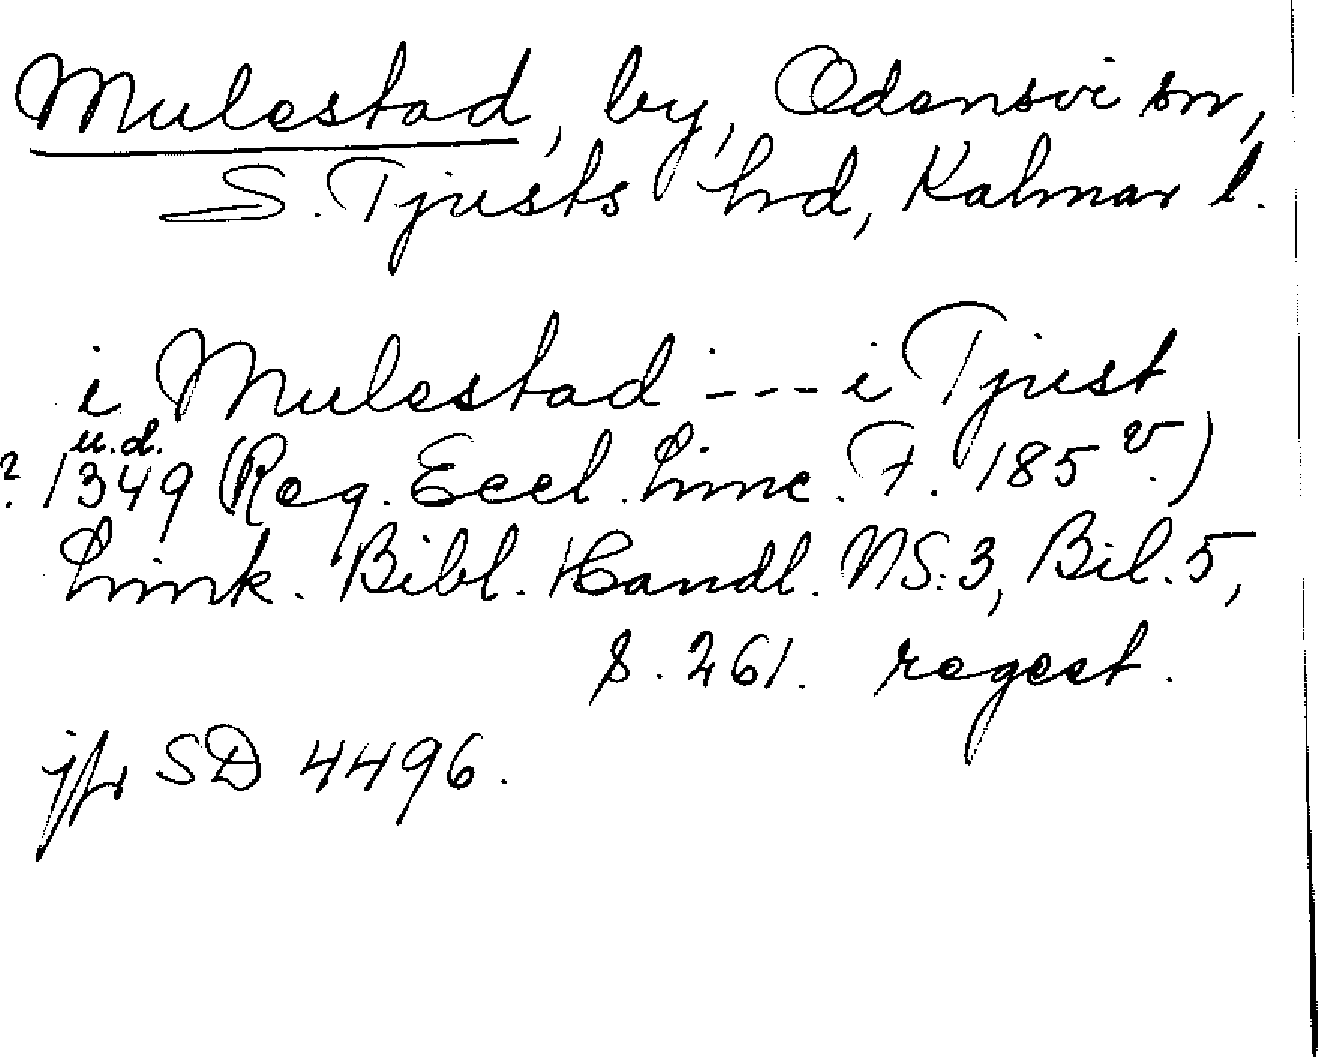 Mulestad, by, Odensvi sn,
S. Tjusts hd, Kalmar l.
i Mulestad --- i Tjust
u.d.
? 1349 (Reg. Eccl. Linc. F. 185 v.)
Link. Bibl. Handl. NS:3, Bil. 5,
s. 261. regest.
jfr SD 4496.